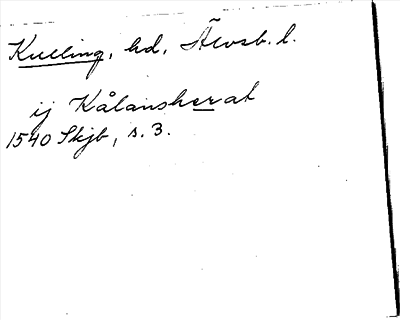 Kulling, hd, Älvsb. l.
ij Kålansherat
1540 Skjb, s. 3.